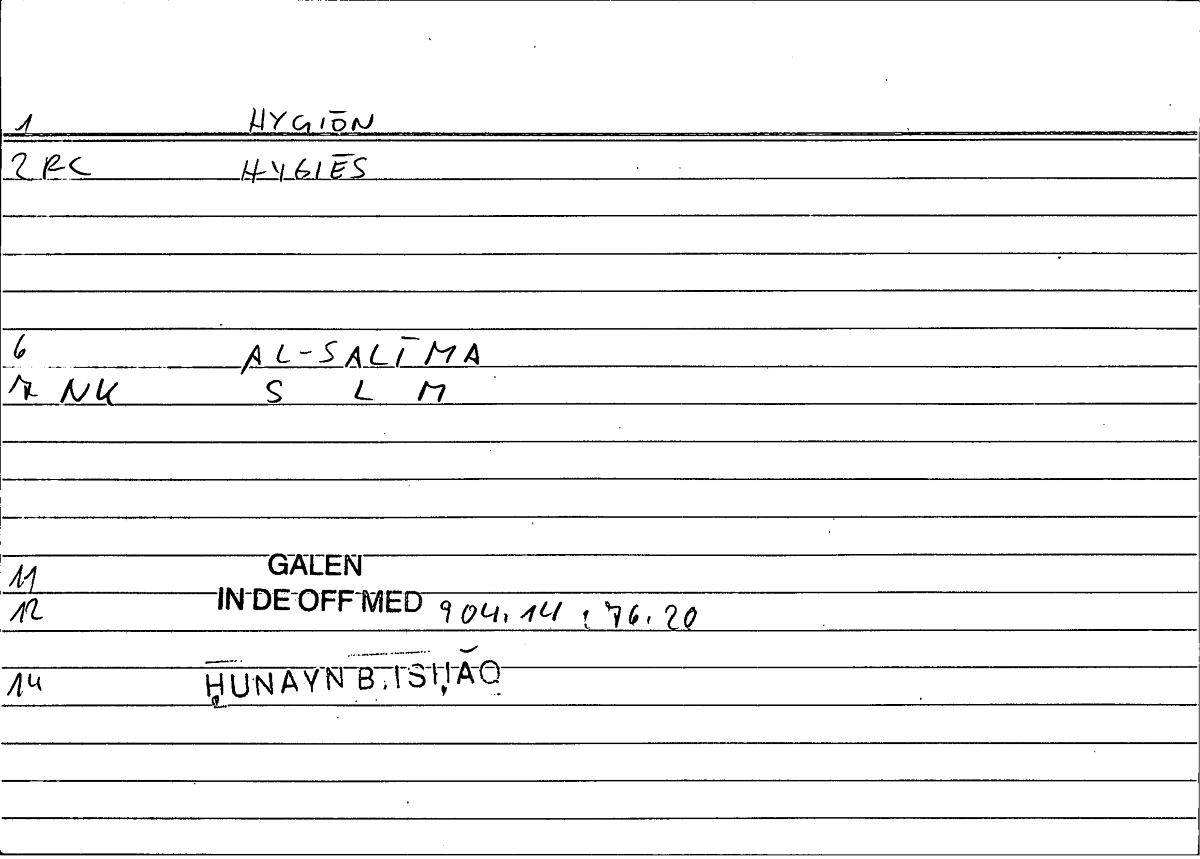 1 HYGIŌN
2 RC HYGIĒS
6 AL-SALĪMA
7 NK S L M
11 GALEN
12 IN DE OFF MED 904.14 : 76.20
14 ḤUNAYN B. ISḤĀQ